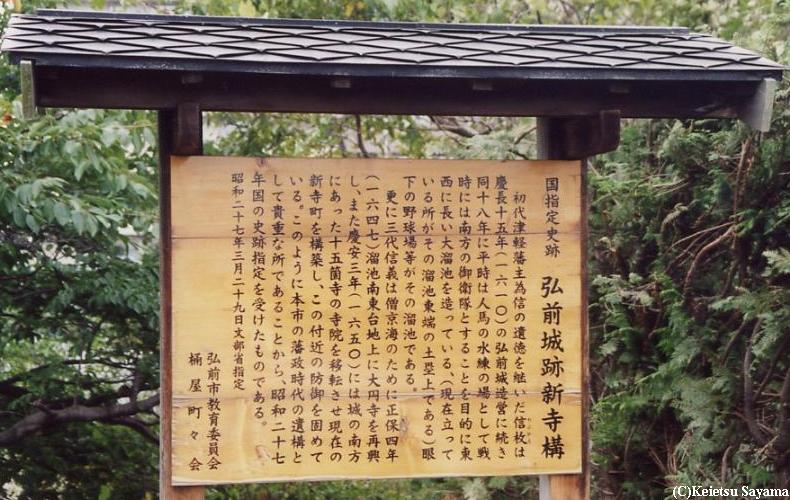 国指定史跡 弘前城跡新寺構
初代津軽藩主為信の遺徳を継いだ信枚は
慶長十五年(一六一〇)の弘前城造営に続き
同十八年に平時は人馬の水練の場として戦
時には南方の御衛隊とすることを目的に東
西に長い大溜池を造っている、(現在立って
いる所がその溜池東端の土塁上である)眼
下の野球場等がその溜池である。
更に三代信義は僧京海のために正保四年
(一六四七)溜池南東台地上に大円寺を再興
し、また慶安三年(一六五〇)には城の南方
にあった十五箇寺の寺院を移転させ現在の
新寺町を構築し、この付近の防御を固めて
いる。このように本市の藩政時代の遺構と
して貴重な所であることから、昭和二十七
年国の史跡指定を受けたものである。
昭和二十七年三月二十九日文部省指定
弘前市教育委員会
桶屋町々会
(C)Keietsu Sayama